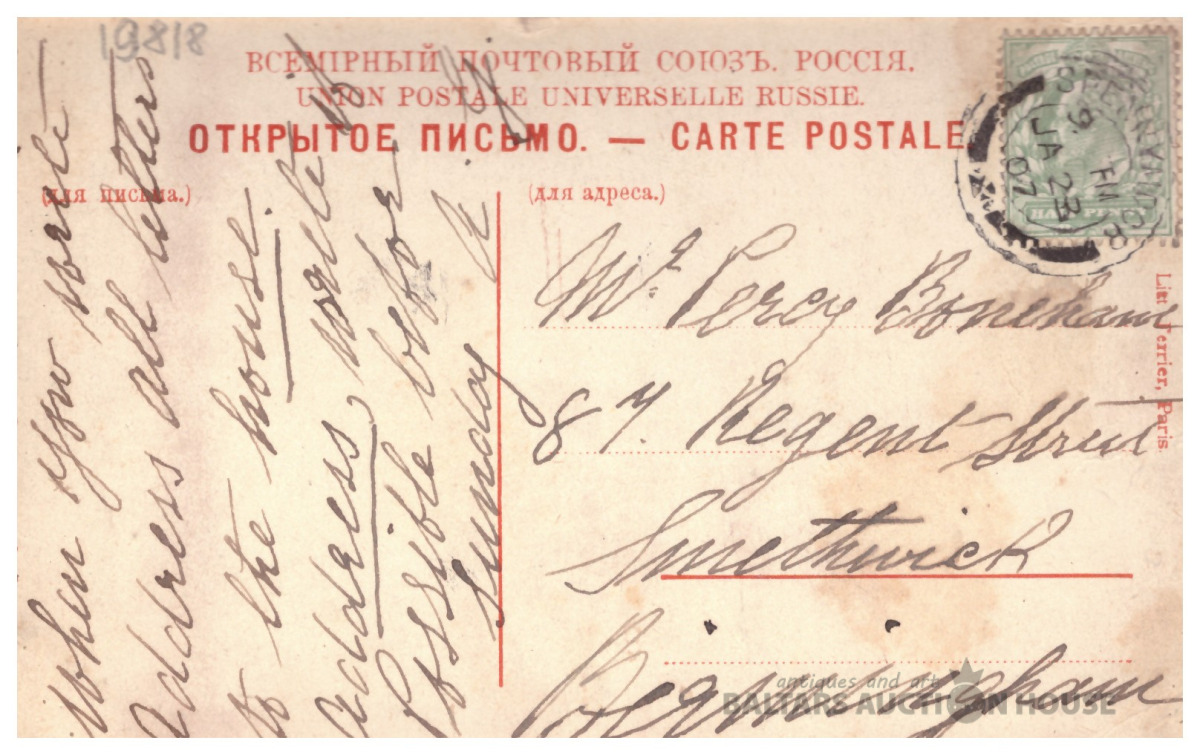 19818
ВСЕМІРНЫЙ ПОЧТОВЫЙ СОЮЗЪ. РОССІЯ.
UNION POSTALE UNIVERSELLE RUSSIE.
ОТКРЫТОЕ ПИСЬМО. — CARTE POSTALE
(для письма.)
(для адреса.)
when you write
address all letters
to the house
address write
Possible before
Sunday
Mr. Percy Boneham
87. Regent Street
Smethwick
Birmingham
JA 23
07
HALF PENNY
Terrier, Paris.
antiques and art
BALTARS AUCTION HOUSE